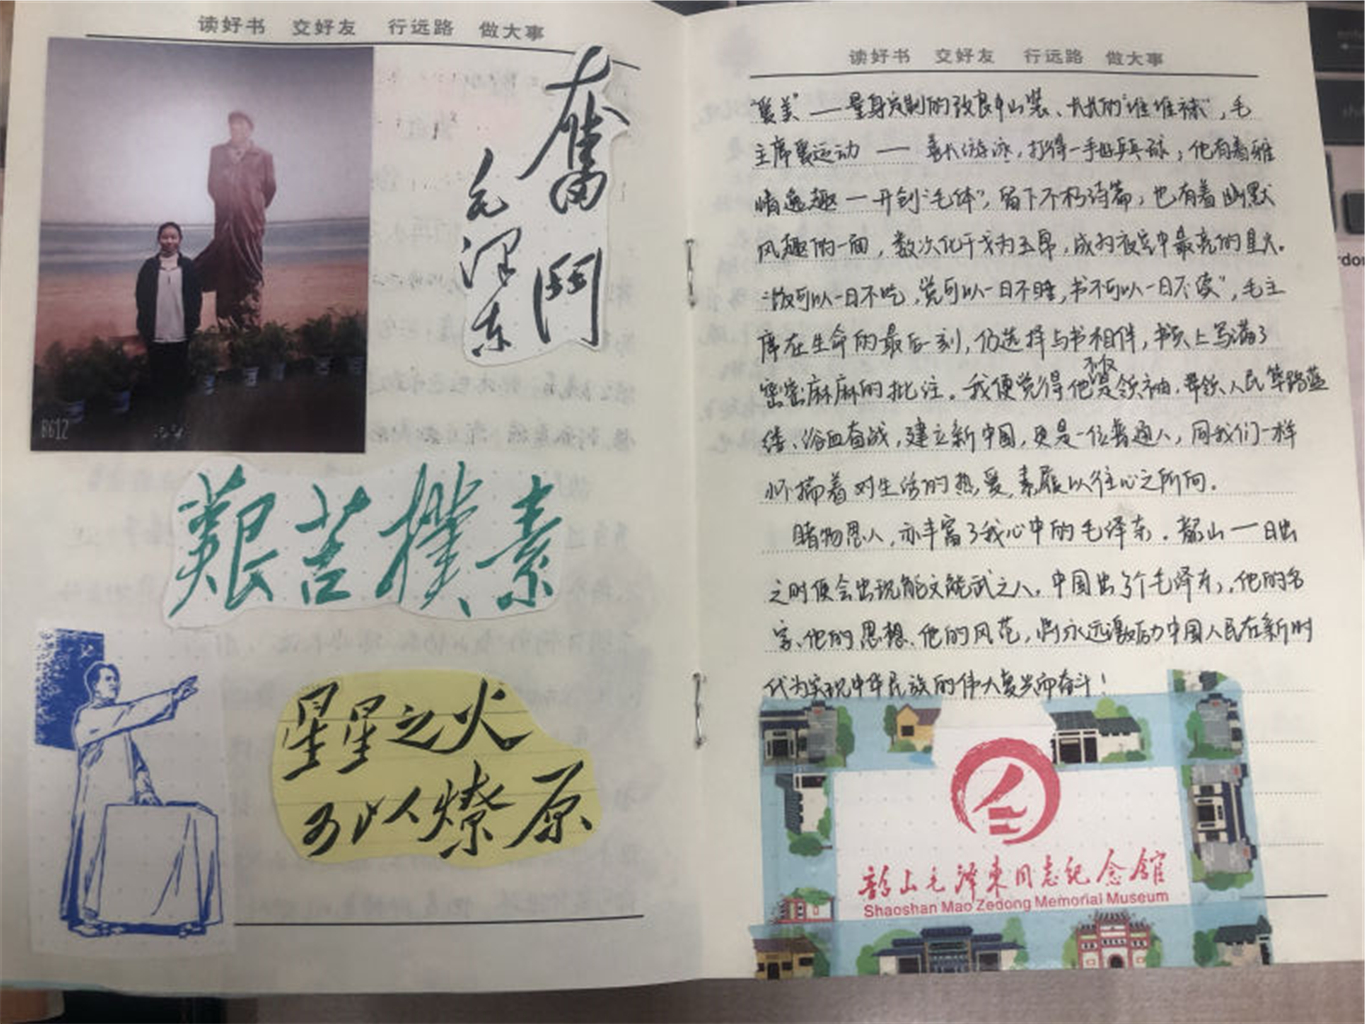 读好书 交好友 行远路 做大事
奮鬥
毛泽东
B612
艱苦樸素
星星之火
可以燎原
读好书 交好友 行远路 做大事
“爱美”——量身定制的改良中山装、大大的“堆堆袜”,毛
主席爱运动——喜爱游泳,打得一手乒乓球,他有着雅
情逸趣——开创“毛体”,留下不朽诗篇,也有着幽默
风趣的一面,数次化干戈为玉帛,成为夜空中最亮的星火。
“饭可以一日不吃,觉可以一日不睡,书不可以一日不读”,毛主
席在生命的最后一刻,仍选择与书相伴,书页上写满了
密密麻麻的批注。我便觉得他不仅是领袖,带领人民筚路蓝
缕、浴血奋战,建立新中国,更是一位普通人,同我们一样
怀揣着对生活的热爱,素履以往心之所向。
睹物思人,亦丰富了我心中的毛泽东。韶山——日出
之时便会出现能文能武之人。中国出了个毛泽东,他的名
字、他的思想、他的风范,将永远激励中国人民在新时
代为实现中华民族的伟大复兴而奋斗!
韶山毛泽東同志纪念館
Shaoshan Mao Zedong Memorial Museum